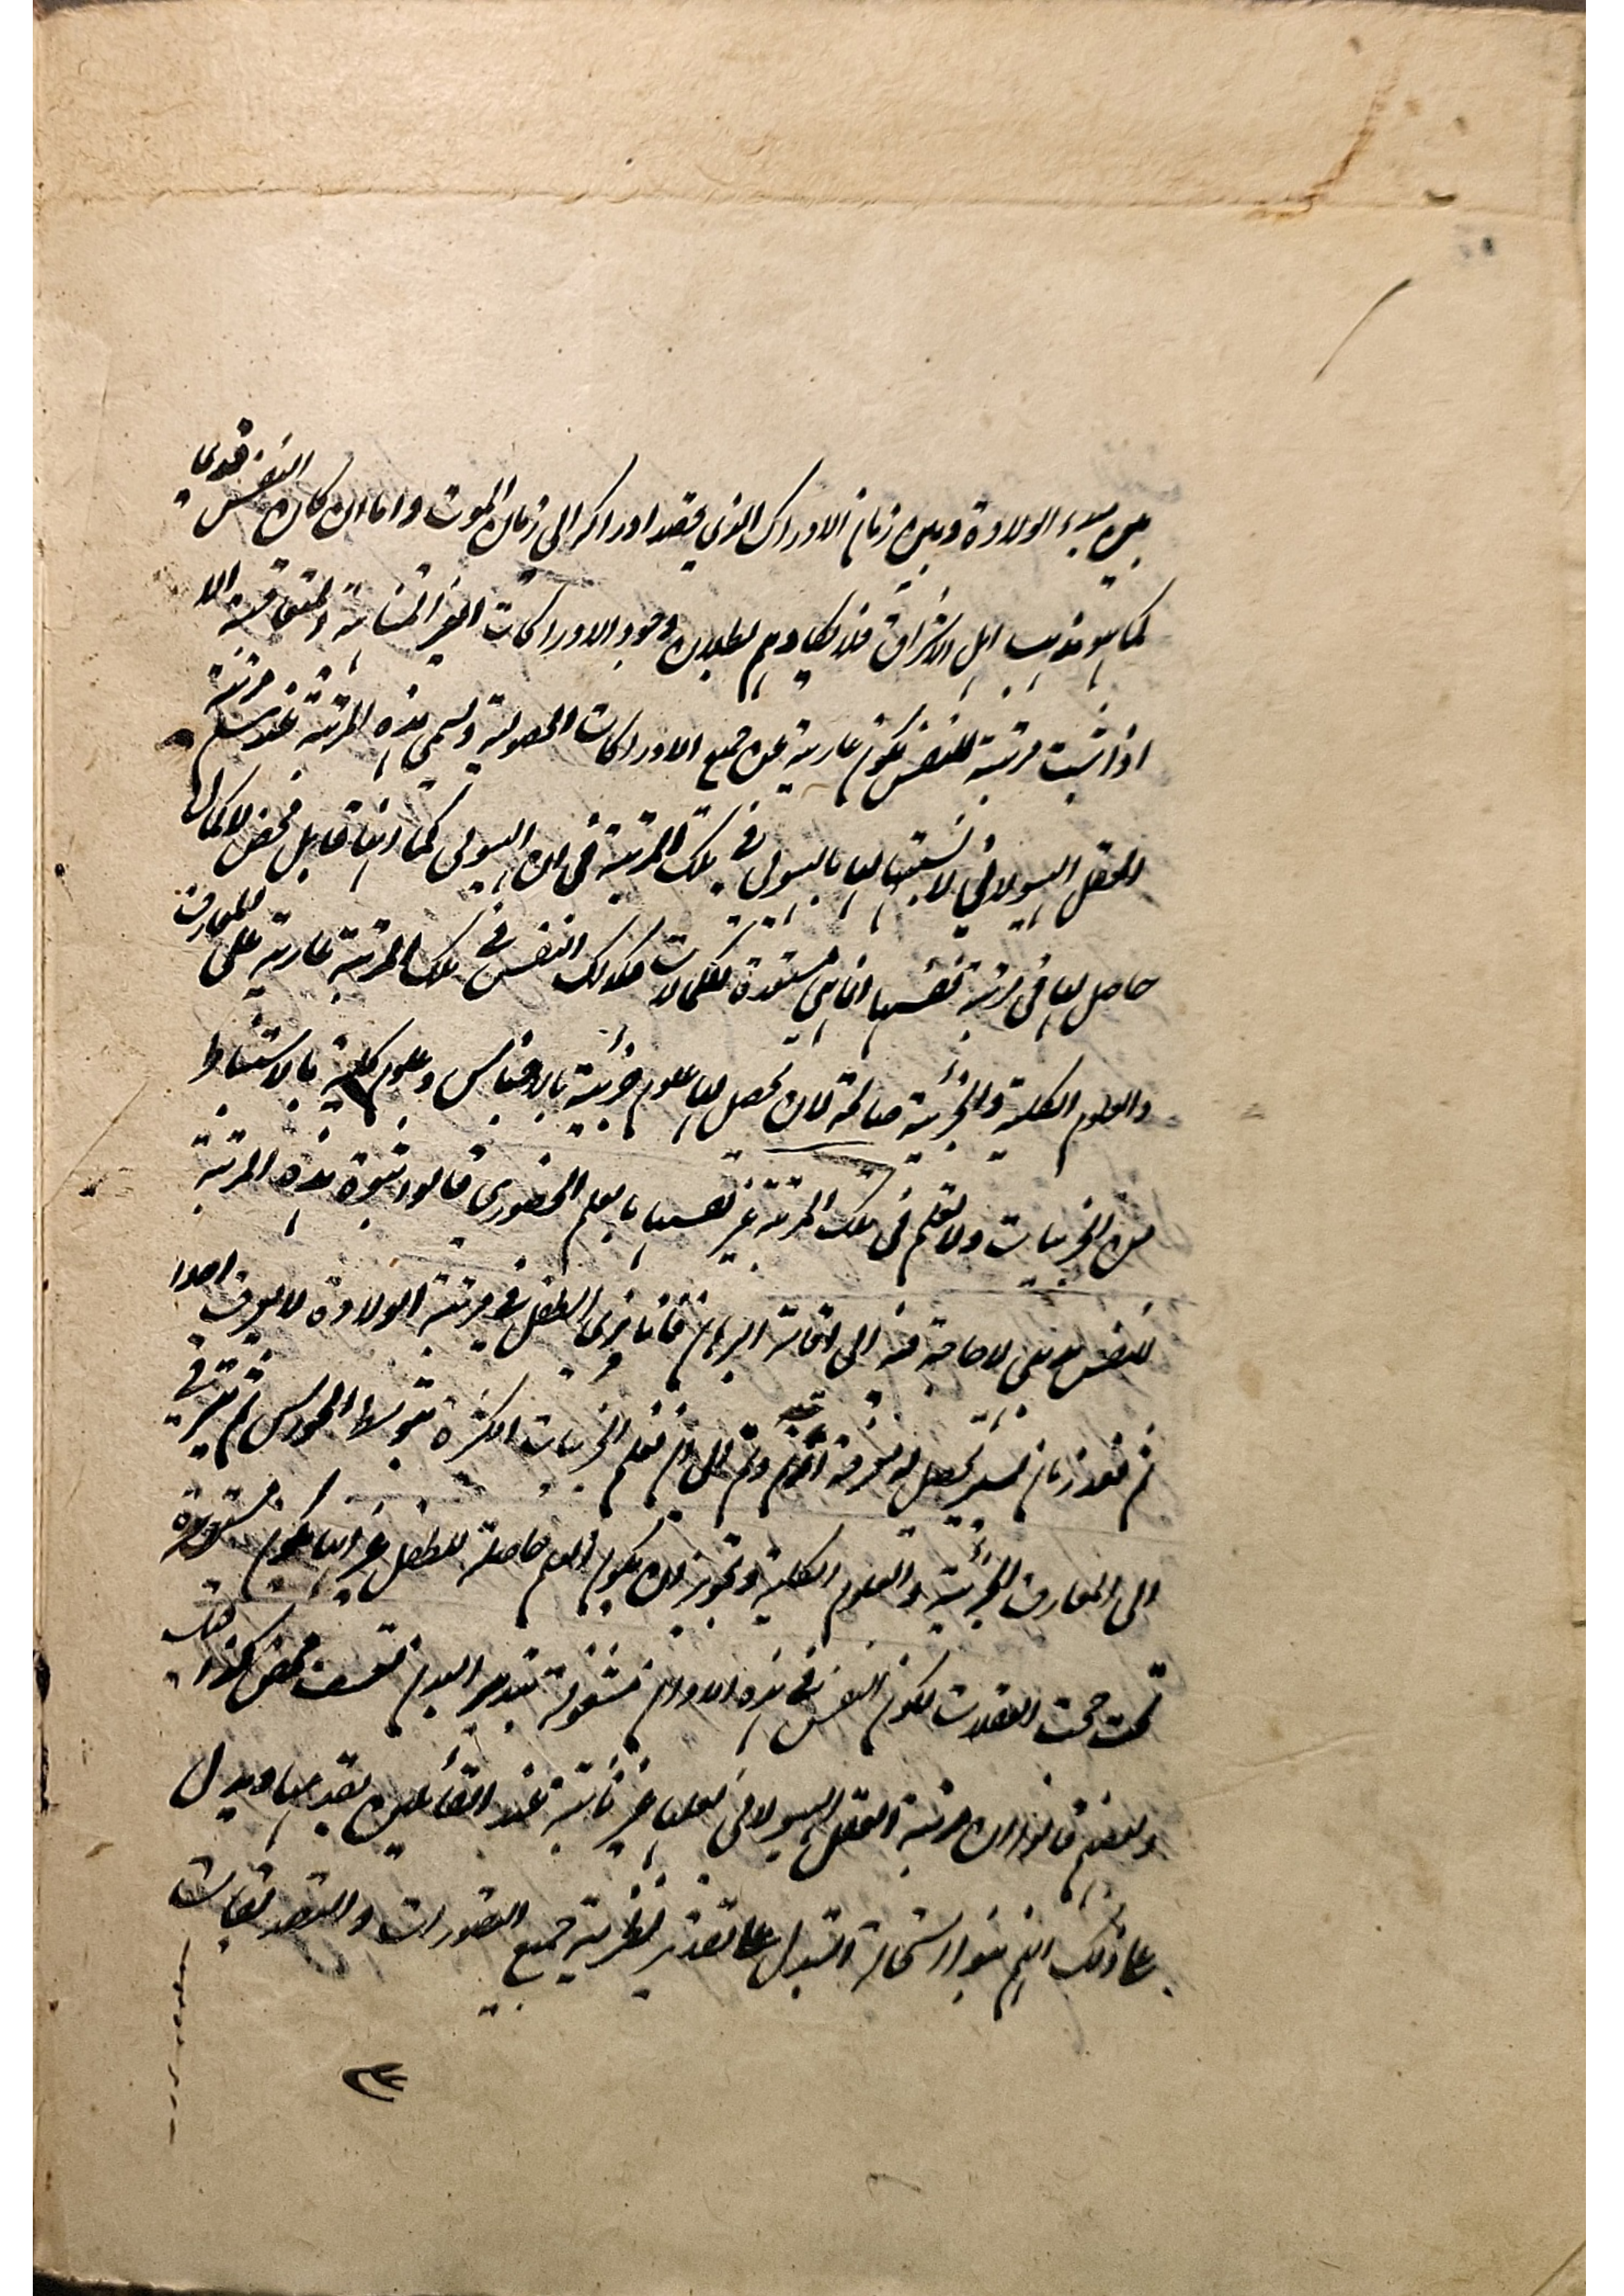 بين مبدء الولادة وبين زمان الادراك الذي يقصد ادراكه الى زمان الموت واما ان كان النفس قديما
كما هو مذهب اهل الاشراق فلا يكاد يتم بطلان وجود الادراكات الغير المتناهية والمتعاقبة الا
اذا ثبت مرتبة للنفس تكون عارية عن جميع الادراكات الحصولية وتسمى هذه المرتبة عندهم مرتبة
العقل الهيولاني لا لها بالهيولى في تلك المرتبة في ان الهيولى كما انها قابل محض لا كمال
حاصل لها في مرتبة نفسها انما هي مستعدة للكمالات فكذلك النفس في تلك المرتبة عارية عن المعارف
والعلوم الكلية والجزئية صالحة لان تحصل لها علوم جزئية بالاحساس وعلوم كلية بالاستنباط
من الجزئيات ولا تعلم في تلك المرتبة غير نفسها بالعلم الحضوري قالوا ثبوت هذه المرتبة
للنفس بديهي لا حاجة فيه الى اقامة البرهان فانا نرى الطفل في مرتبة الولادة لا يعرف احدا
ثم بعد زمان يسير تحصل له معرفة امه وثم الى ان تعلم الجزئيات الكثيرة بتوسط الحواس ثم تترقى
الى المعارف الجزئية والعلوم الكلية وتجويز ان يكون العلم حاصلة للطفل غير انها تكون مستورة
تحت حجب الغفلات لكون النفس في هذه الاوان مشغولة بتدبير البدن تعسف محض كذا قيل
وبعضهم قالوا ان مرتبة العقل الهيولاني لعلها غير ثابتة عند القائلين بقدمها ويدل
على ذلك انهم بنوا استحالة التسلسل على تقدير نظرية جميع التصورات والتصديقات